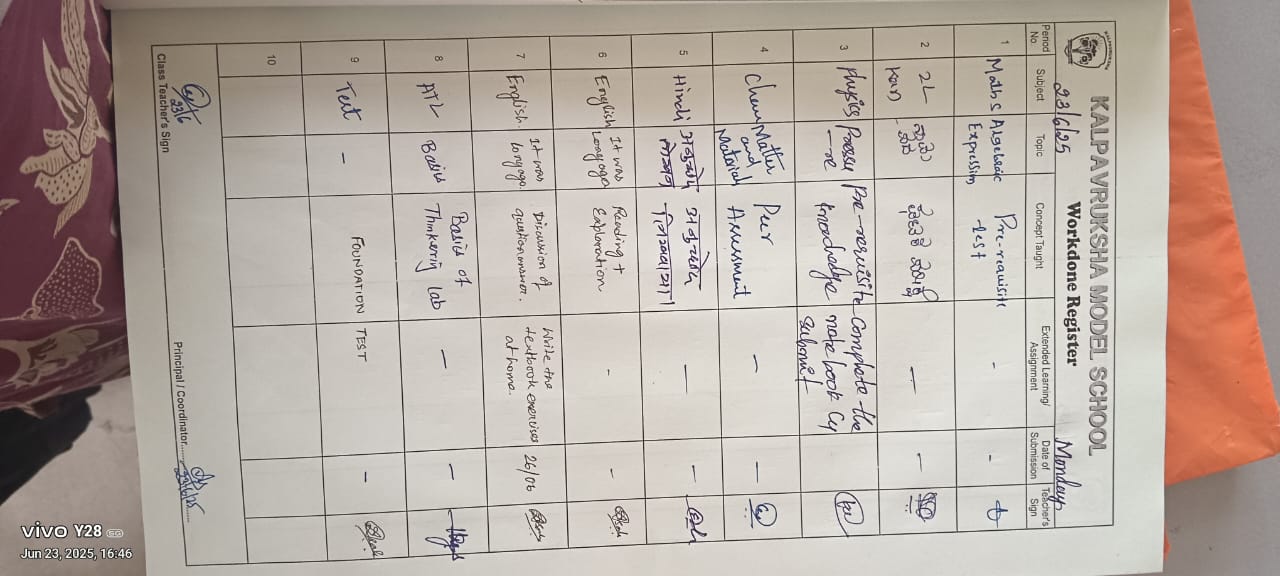 KALPAVRUKSHA MODEL SCHOOL
Workdone Register
23/6/25
Monday
Period No.
Subject
Topic
Concept Taught
Extended Learning/ Assignment
Date of Submission
Teacher's Sign
1
Maths
Algebraic
Expression
Pre-requisite
test
-
-
2
2L
Kan
—
—
3
Physics
Pressu
-re
Pre-requisite
knowledge
Complete the
note book &
submit
4
Chem
Matter
and
Material
Peer
Assessment
—
—
5
Hindi
—
—
6
English
It was
Longago
Reading +
Explanation
-
-
7
English.
It was
longago.
Discussion of
question answer.
Write the
textbook exercises
at home.
26/06
8
ATL
Basics
Basics of
Thinkering lab
—
—
9
Test
-
FOUNDATION TEST
-
10
23/6
Class Teacher's Sign
Principal / Coordinator
23/6/25
vivo Y28
Jun 23, 2025, 16:46